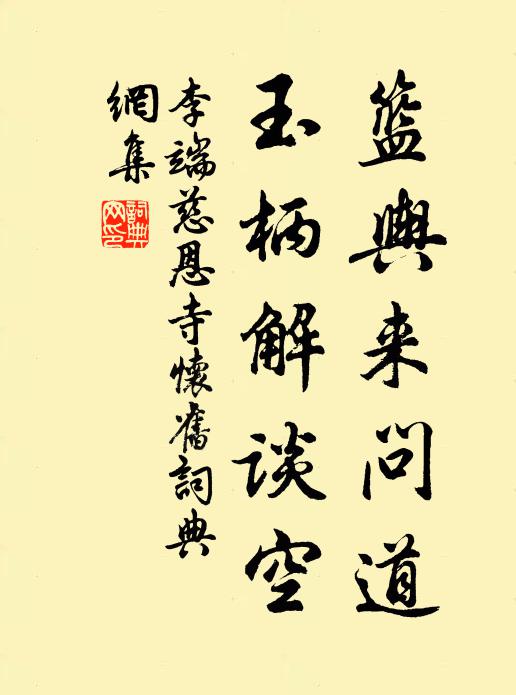 籃輿来问道
玉柄解谈空
李端慈恩寺懷舊詞典
網集
詞典
网印